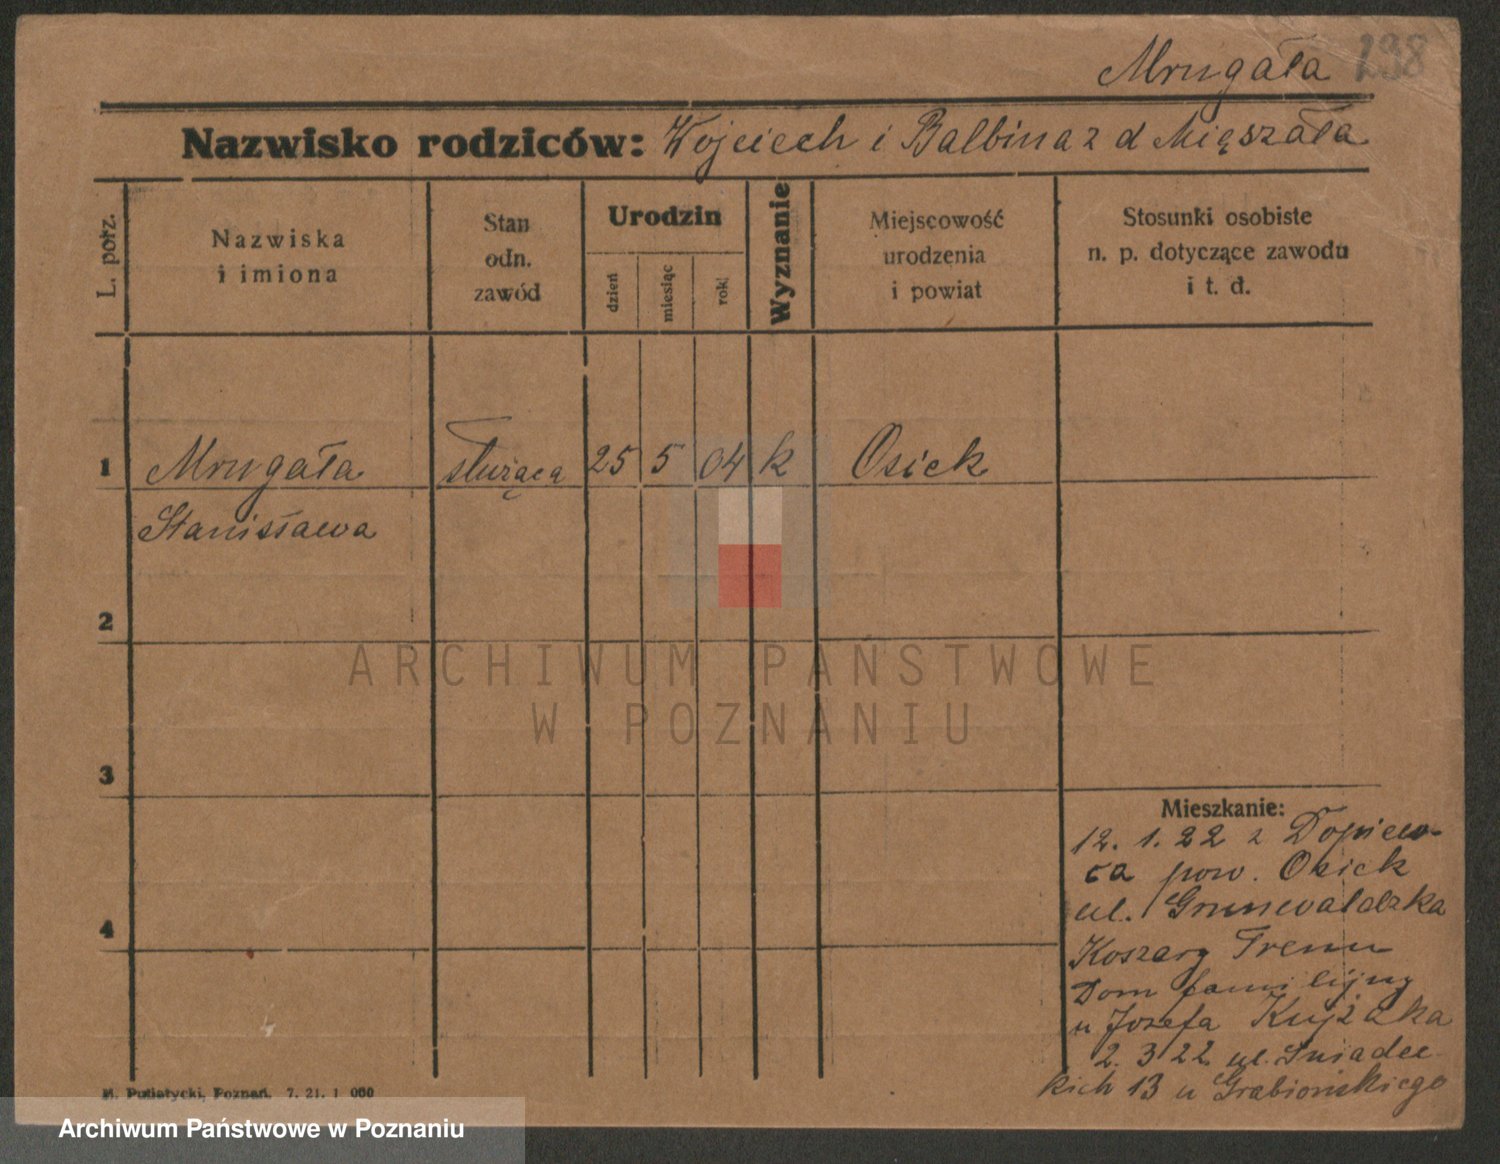 Mrugała 298
Nazwisko rodziców: Wojciech i Balbina z d Mięszała
L. porz.
Nazwiska
i imiona
Stan
odn.
zawód
Urodzin
dzień
miesiąc
rok
Wyznanie
Miejscowość
urodzenia
i powiat
Stosunki osobiste
n. p. dotyczące zawodu
i t. d.
1 Mrugała służąca 25 5 04 k Osiek
Stanisława
2
ARCHIWUM PAŃSTWOWE
W POZNANIU
3
4
Mieszkanie:
12. 1. 22 z Dopiew-
ca pow. Osiek
ul. Grunwaldzka
Koszary Trenu
Dom familijny
u Józefa Kujżaka
2. 3 22 ul. Śniadec-
kich 13 u Grabiońskiego
M. Putiatycki, Poznań. 7. 21. 1 000
Archiwum Państwowe w Poznaniu